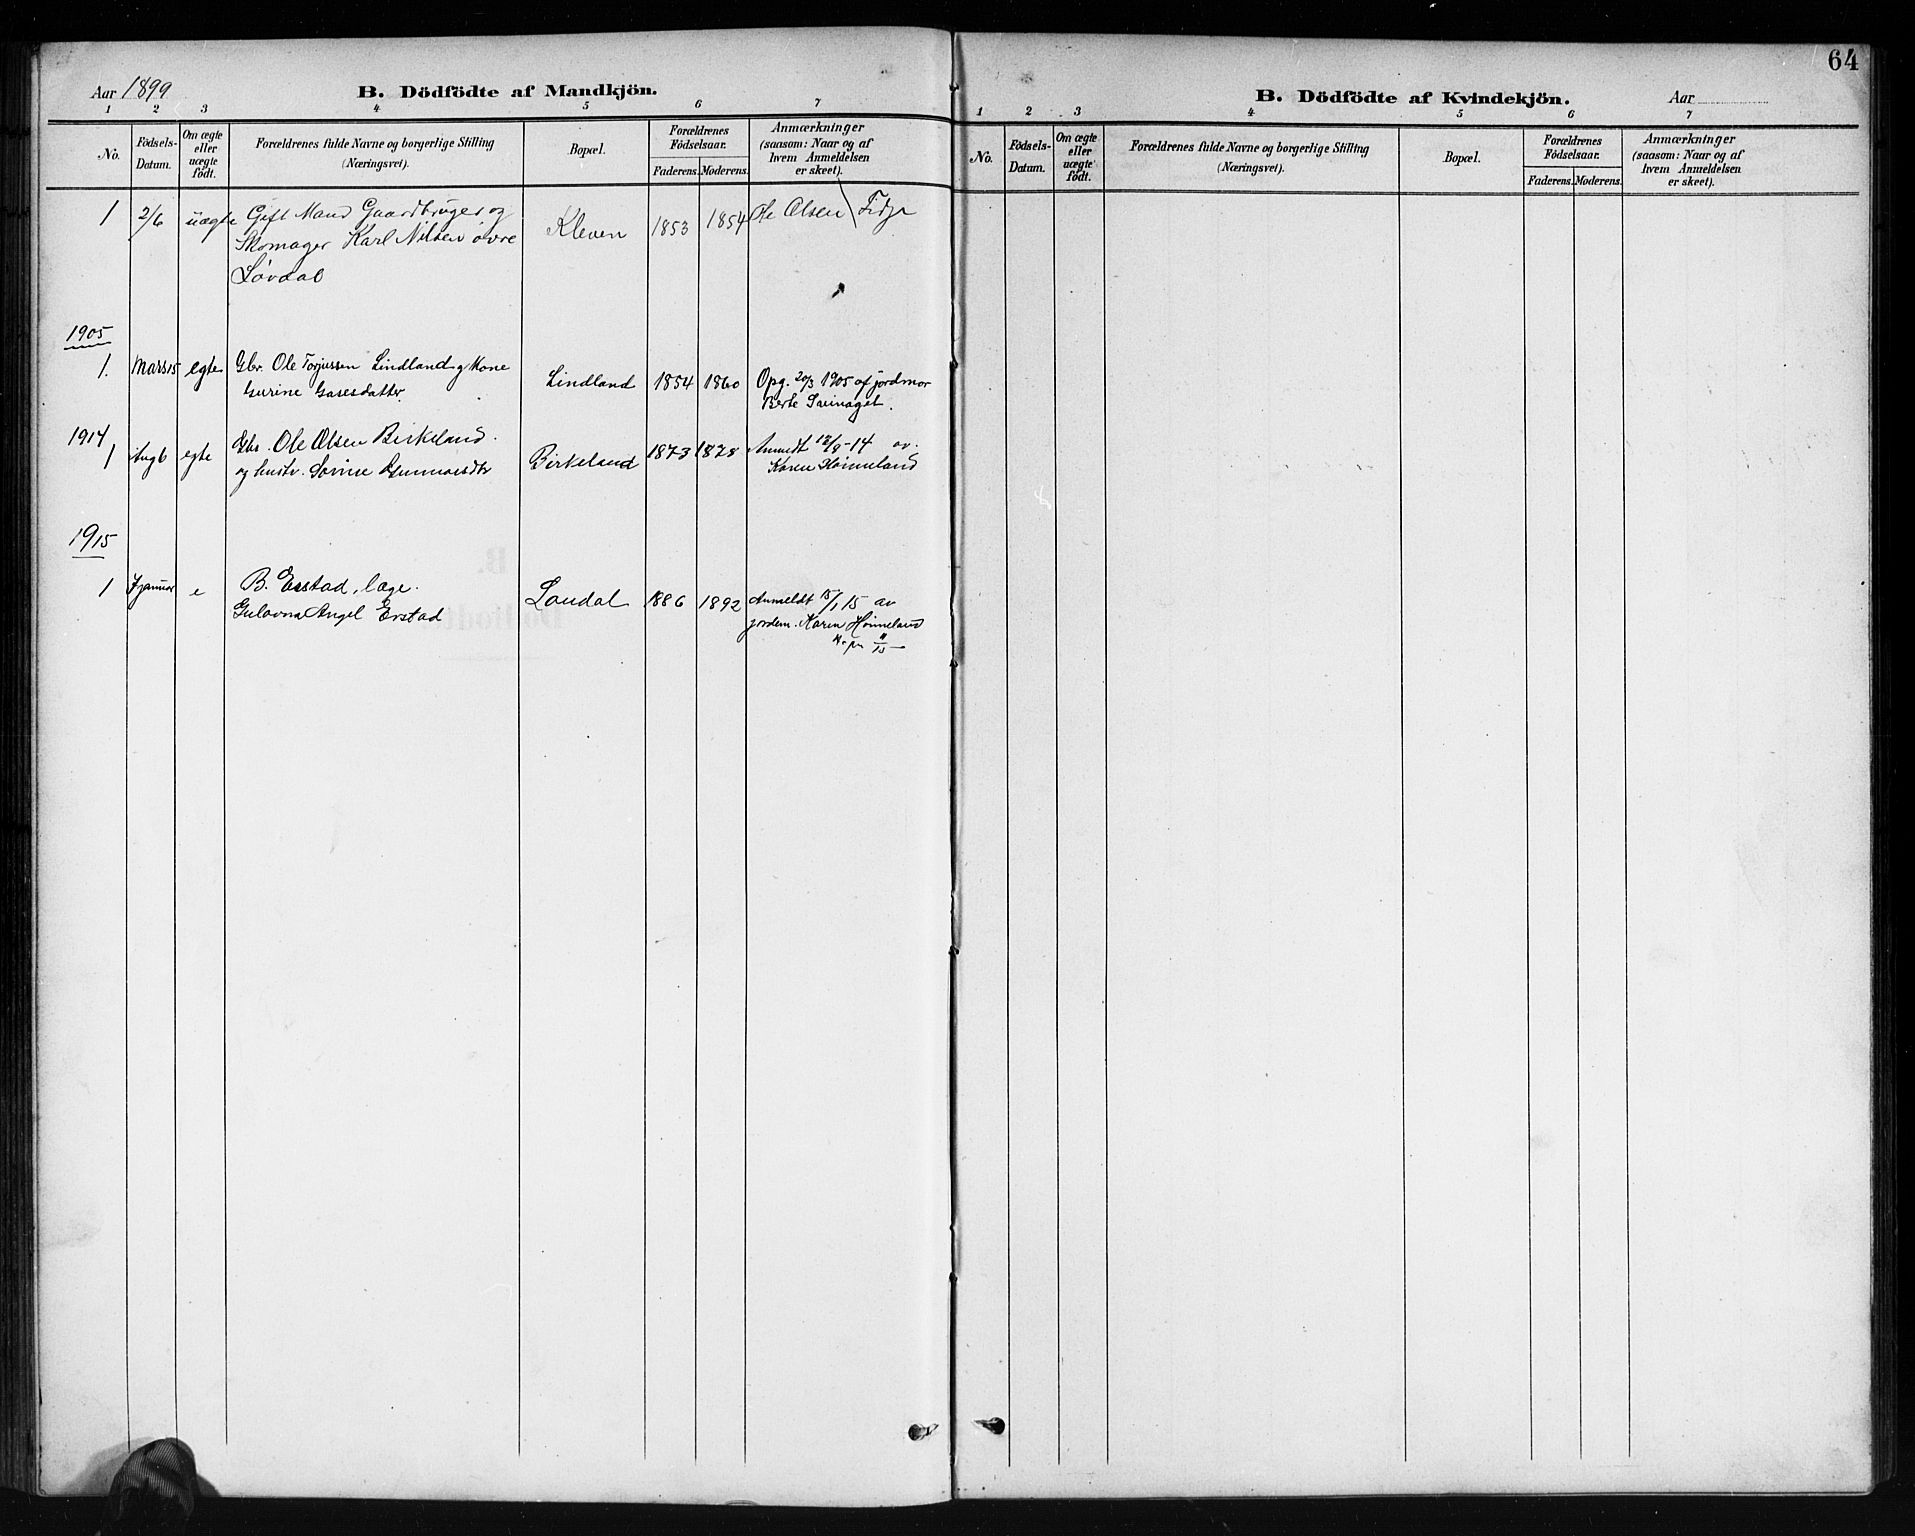 64
Aar 1899 B. Dödfödte af Mandkjön.
1 2 3 4 5 6 7
No. Födsels-Datum. Om ægte eller uægte födt. Forældrenes fulde Navne og borgerlige Stilling (Næringsvei). Bopæl. Forældrenes Födselsaar. Faderens. Moderens. Anmærkninger (saasom: Naar og af hvem Anmeldelsen er skeet).
1 2/6 uægte Gift Mand Gaardbruger og Kleven 1853 1854 Ole Olsen Fidje
Skomager Karl Nilsen øvre
Løvdal
1905
1. Mars 15 egte Gbr. Ole Torjussen Lindland og Kone Lindland 1854 1860 Opg. 20/3 1905 af jordmor
Gurine Aasesdatter Berte
1914
1 Aug 6 egte Gbr. Ole Olsen Birkeland. Birkeland 1873 1878 Anmeldt 12/9-14 av.
og hustr. Gunnarsdtr Karen Hønneland
1915
1 7 januar e B. Erstad, læge. Laudal 1886 1892 Anmeldt 15/1 15 av
Gulovna Angel Erstad jordm. Karen Hønneland
B. Dödfödte af Kvindekjön. Aar
1 2 3 4 5 6 7
No. Födsels-Datum. Om ægte eller uægte födt. Forældrenes fulde Navne og borgerlige Stilling (Næringsvei). Bopæl. Forældrenes Födselsaar. Faderens. Moderens. Anmærkninger (saasom: Naar og af hvem Anmeldelsen er skeet).